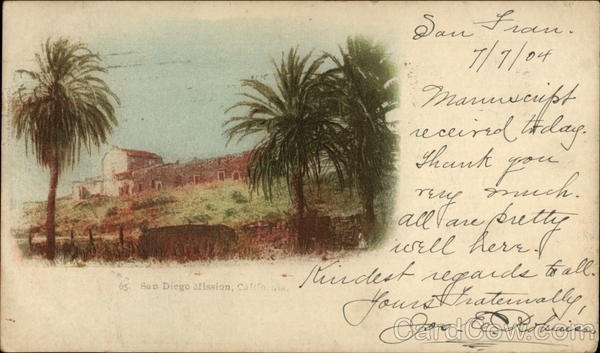 San Fran.
7/7/04
Manuscript
received today.
Thank you
very much.
all are pretty
well here.
Kindest regards to all.
Yours Fraternally,
65. San Diego Mission, California.
CardCow.com